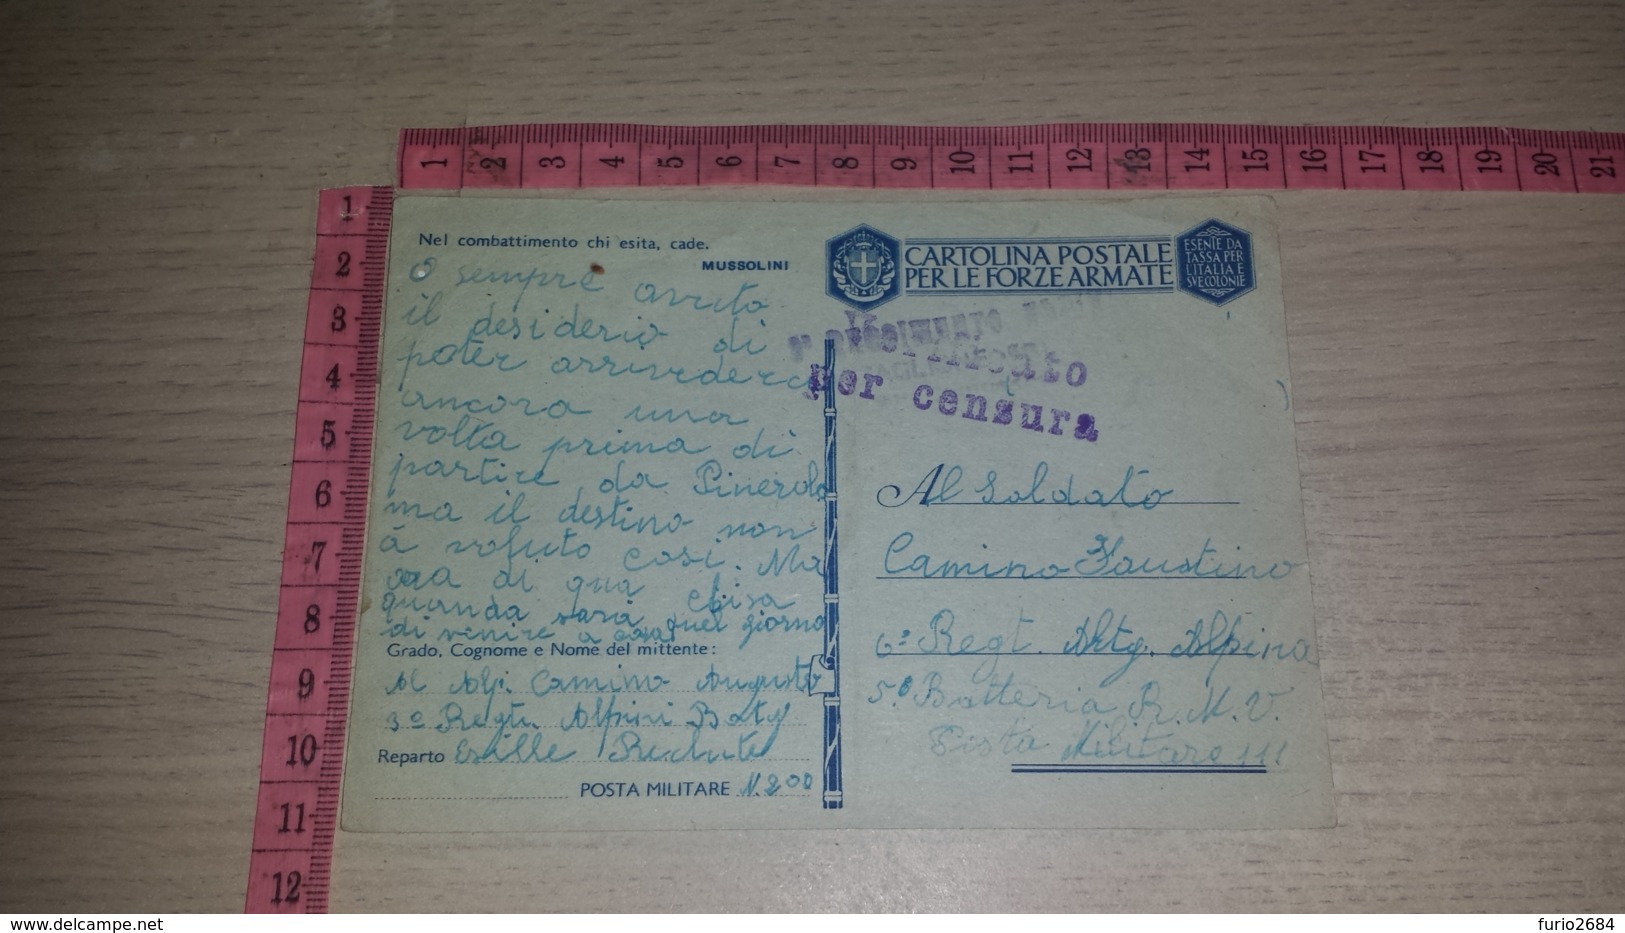 1 2 3 4 5 6 7 8 9 10 11 12 13 14 15 16 17 18 19 20 21
1
2
3
4
5
6
7
8
9
10
11
12
Nel combattimento chi esita, cade.
MUSSOLINI
O sempre avuto
il desiderio di
poter arrivederci
ancora una
volta prima di
partire da Pinerolo
ma il destino non
à voluto cosi. Ma
ora di qua chisa
quando sarà quel giorno
di venire a casa
Grado, Cognome e Nome del mittente:
Al Alp. Camino Augusto
3º Regtº Alpini Batg
Reparto Esille Reclute
POSTA MILITARE N. 200
CARTOLINA POSTALE
PER LE FORZE ARMATE
ESENTE DA
TASSA PER
L'ITALIA E
SVE COLONIE
Verificato
per censura
Al Soldato
Camino Faustino
6º Regt. Artg. Alpina
5º Batteria R. M. V.
Posta Militare 111
www.delcampe.net
furio2684